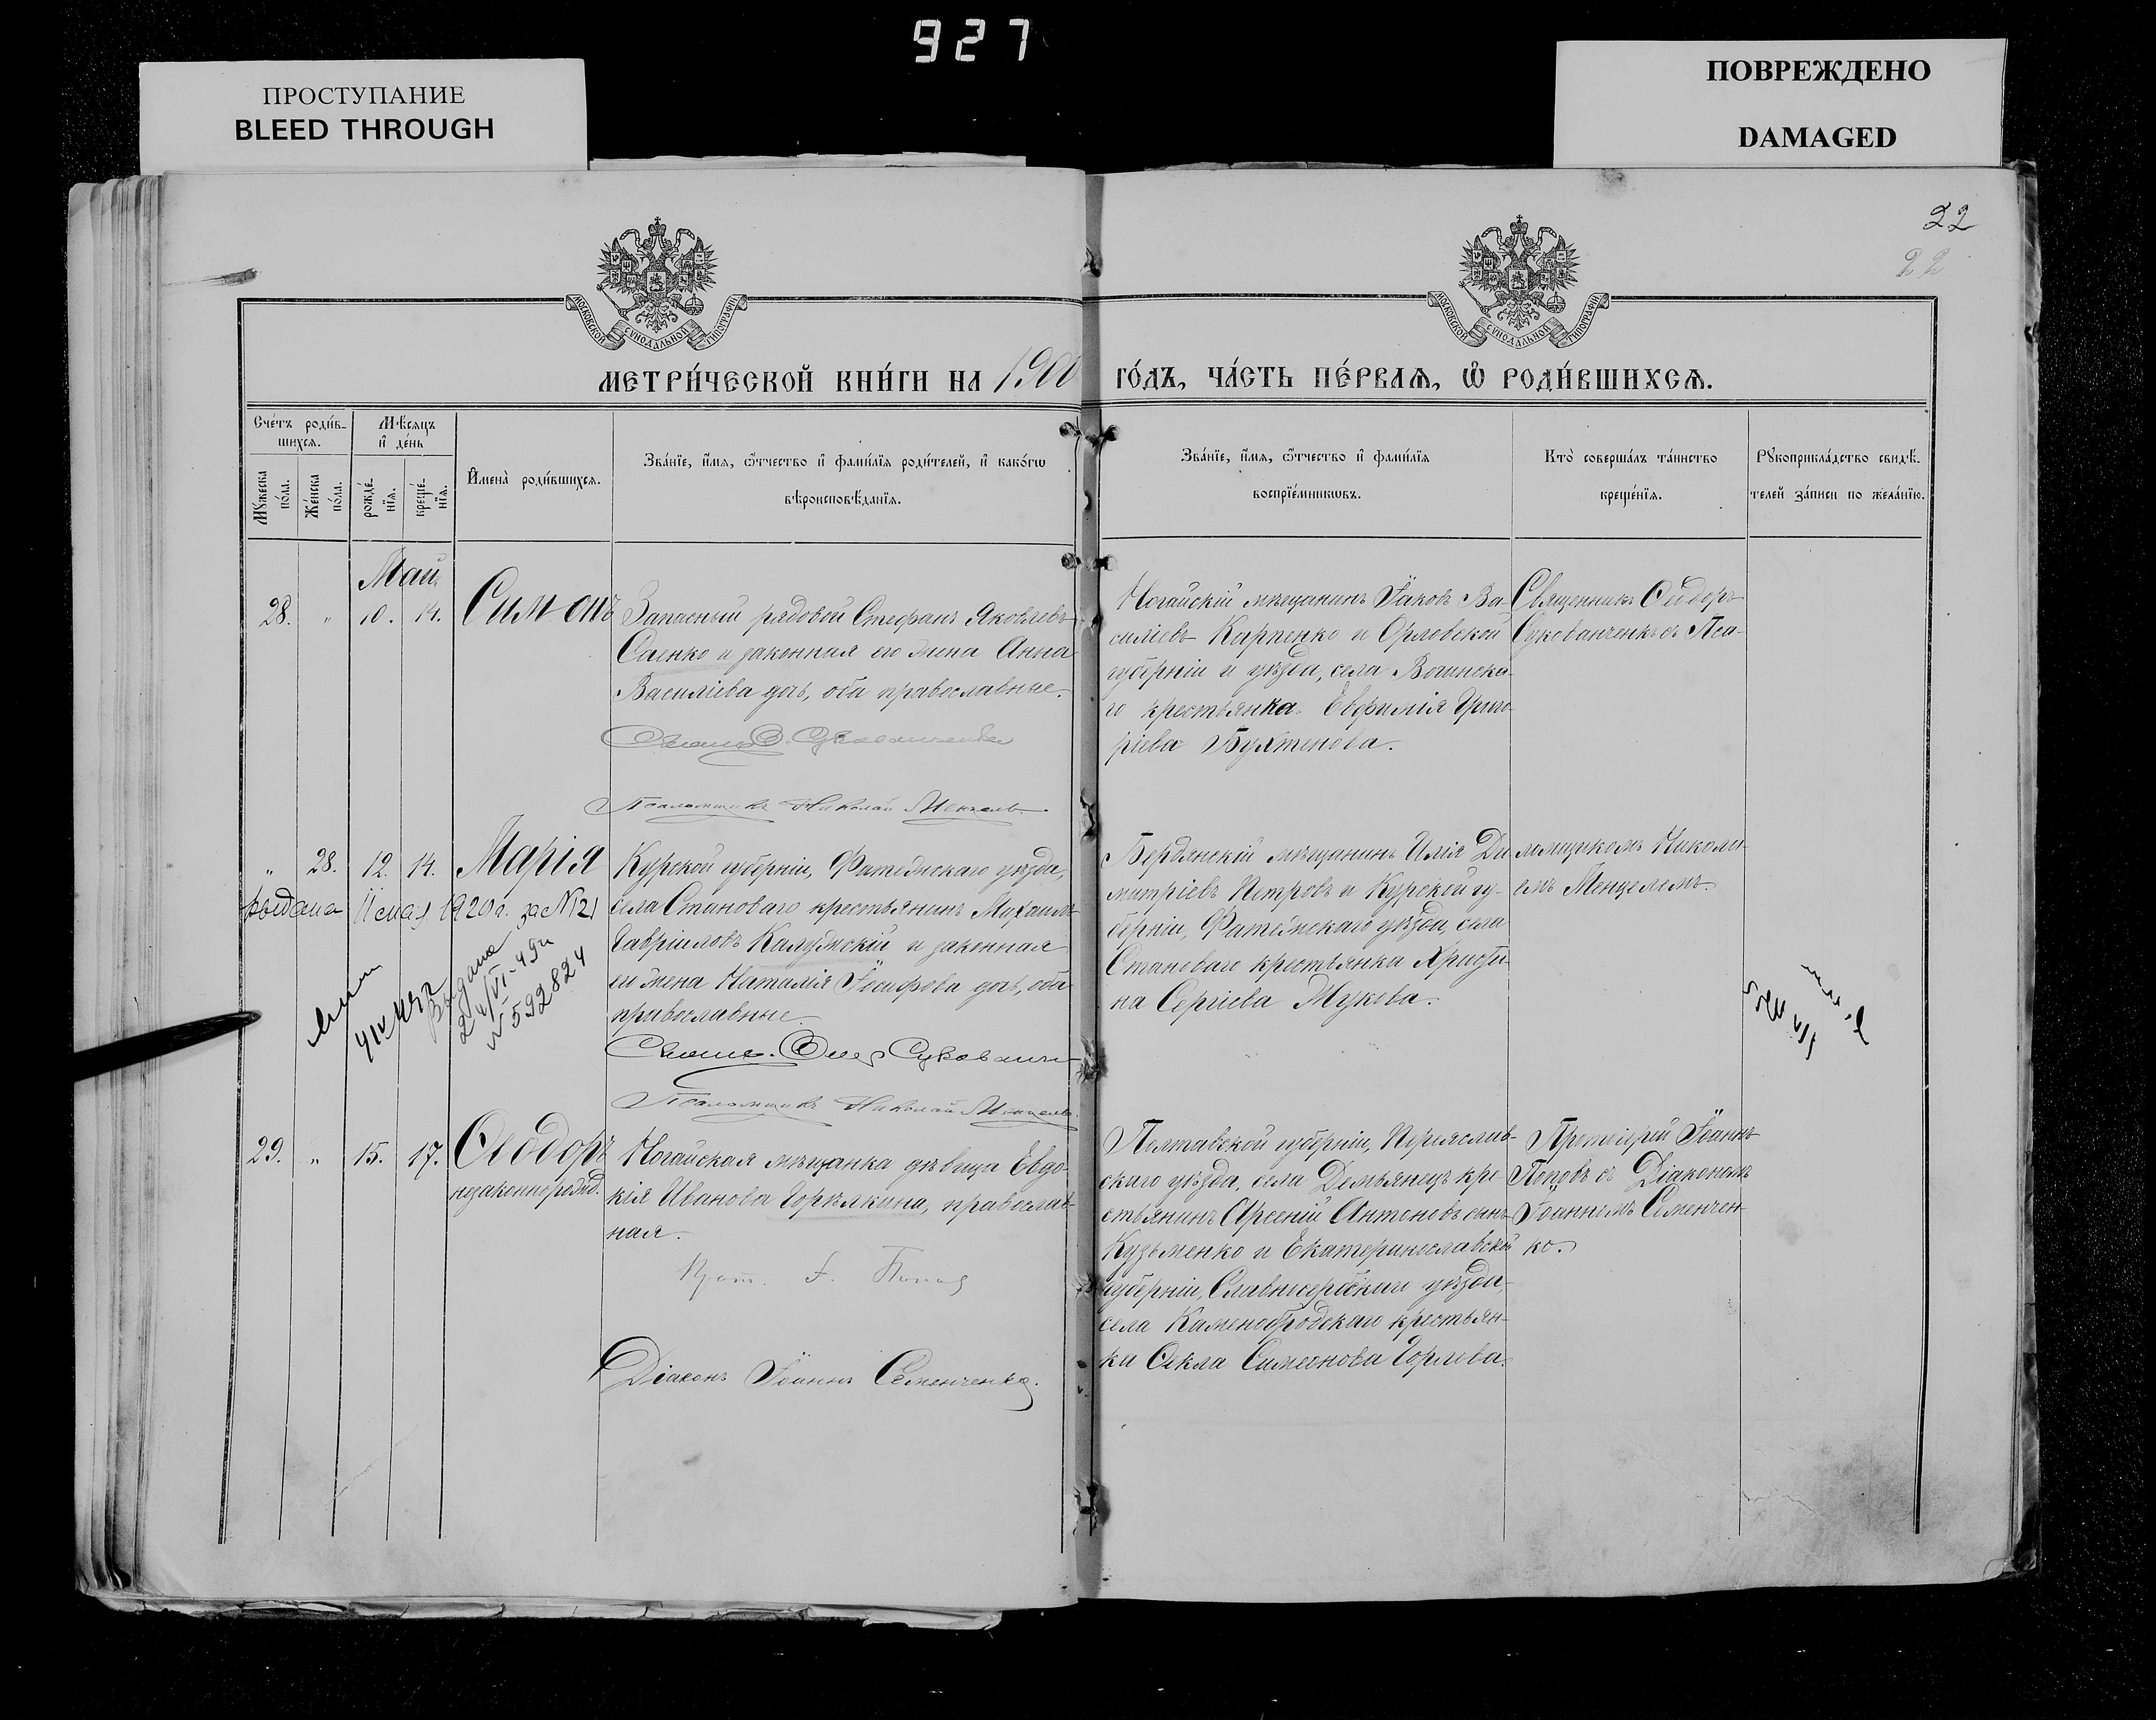 927
ПРОСТУПАНИЕ
BLEED THROUGH
ПОВРЕЖДЕНО
DAMAGED
22
22
МОСКОВСКОЙ СУНОДАЛЬНОЙ ТИПОГРАФІИ
МОСКОВСКОЙ СУНОДАЛЬНОЙ ТИПОГРАФІИ
МЕТРИ́ЧЕСКОЙ КНИ́ГИ НА 1900 ГО́ДЪ, ЧА́СТЬ ПЕ́РВАѦ, Ѡ҆ РОДИ́ВШИХСѦ.
Сче́тъ роди́в-
шихсѧ.
Мꙋжеска по́ла.
Же́нска по́ла.
Мѣ́сѧцъ
и҆ де́нь
рожде́-
нїѧ.
креще́-
нїѧ.
И҆мена̀ роди́вшихсѧ.
Зва́нїе, и҆́мѧ, ѻ҆́тчество и҆ фами́лїѧ роди́телей, и҆ како́гѡ
вѣроисповѣ́данїѧ.
Зва́нїе, и҆́мѧ, ѻ҆́тчество и҆ фами́лїѧ
воспрїе́мникѡвъ.
Кто̀ соверша́лъ та́инство
креще́нїѧ.
Рꙋкоприкла́дство свидѣ́-
телей за́писи по жела́нїю.
Май
28. " 10. 14. Симонъ
Запасный рядовой Стефанъ Яковлевъ
Саенко и законная его жена Анна
Василіева дочь, оба православные.
Псаломщикъ Николай
Ногайскій мѣщанинъ Іаковъ Ва-
силіевъ Карпенко и Орловской
губерніи и уѣзда, села
го крестьянка Евфимія Григо-
ріева
Священникъ Ѳеодоръ
съ Пса-
" 28. 12. 14. Марія
Курской губерніи, Фатежскаго уѣзда,
села Становаго крестьянинъ Михаилъ
Гавріиловъ Калужскій и законная
его жена Наталія Іосифова дочь, оба
православные.
Псаломщикъ Николай
выдана 1920 г. за № 121
Выдана
24/VI-49г
№ 592824
Бердянскій мѣщанинъ Илія Ди-
митріевъ Петровъ и Курской гу-
берніи, Фатежскаго уѣзда, села
Становаго крестьянка Христи-
на Сергіева Жукова.
ломщикомъ Никола-
емъ
29. " 15. 17. Ѳеодоръ
незаконнорожд.
Ногайская мѣщанка дѣвица Евдо-
кія Иванова Горѣлкина, православ-
ная.
Прот. І. Попов
Діаконъ Іоаннъ Семенченко.
Полтавской губерніи, Переяслав-
скаго уѣзда, села Демьянецъ кре-
стьянинъ Арсеній Антоновъ сынъ
Кузьменко и Екатеринославской
губерніи, Славяносербскаго уѣзда,
села Каменобродскаго крестьян-
ка Ѳекла Симеонова Горлова.
Протоіерей Іоаннъ
Поповъ съ Діакономъ
Іоанномъ Семенчен-
ко.